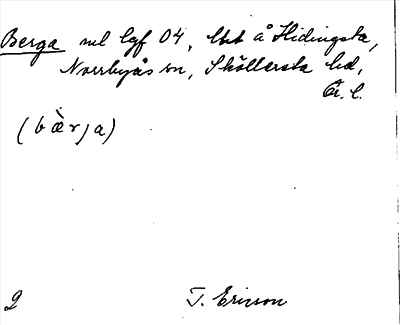 Berga ml lgf 04, lht å Hidingsta,
Norrbyås sn, Sköllersta hd,
Ör. l.
(bæ̀rja)
2 T. Ericson